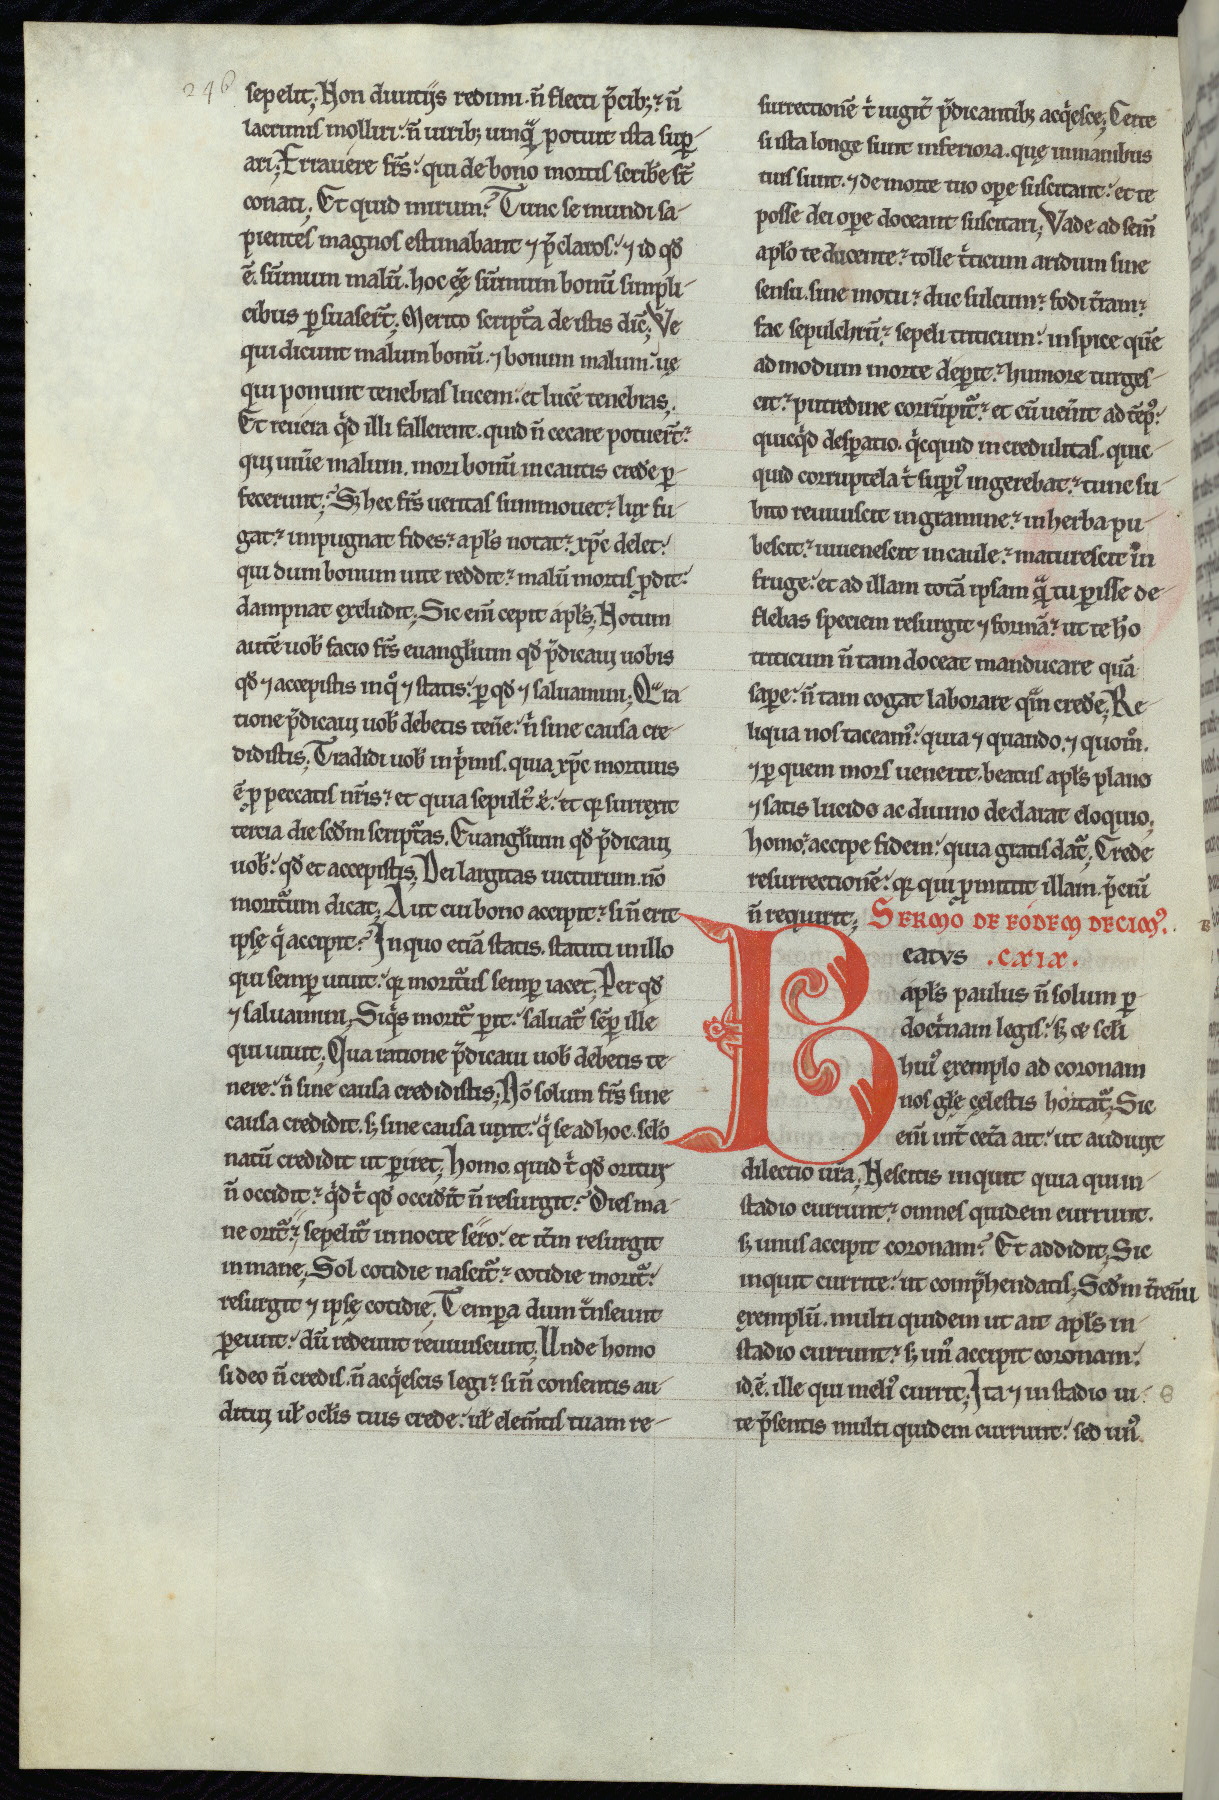 246
sepelit; Non diuitijs redimi. n̄ flecti p̄cib;: n̄
lacrimis molliri: n̄ uirib; unq̃ potuit ista sup̱
ari; Errauere fr̄s: qui de bono mortis scribe st̄
conati; Et quid mirum? Tunc se mundi sa-
pientes magnos estimabant ⁊ p̄claros: ⁊ id qd̄
ē. sūmum malū. hoc eē̜ sūmum bonū simpli-
cibus p̱suaser̄t; Merito script̃a de istis dic̄; Ve
qui dicunt malum bonū. ⁊ bonum malum: ue̜
qui ponunt tenebras lucem: et lucē tenebras;
Et reuera qd̄ illi fallerent. quid n̄ cecare potuer̄t:
qui uiu̅e malum. mori bonū incautis crede p̱-
fecerunt; S; hec fr̄s ueritas summouet: lux fu-
gat: impugnat fides: apl̄s notat: xp̄c delet:
qui dum bonum uite reddit: malū mortis p̱dit:
dampnat excludit; Sic eni̅ cepit apl̄s; Notum
autē uob̄ facio fr̄s euangl̄ium qd̄ p̄dicaui uobis
qd̄ ⁊ accepistis inq̊ ⁊ statis: p̱ qd̄ ⁊ saluamini; Qͣ ra-
tione p̄dicaui uob̄ debetis ten̄e: n̄ sine causa cre-
didistis; Tradidi uob̄ inp̄mis. quia xp̄c mortuus
ē p̱ peccatis nr̄is: et quia sepultꝰ ē: et qꝛ surrexit
tercia die scd̄m script̃as. Euangl̄ium qd̄ p̄dicaui
uob̄: qd̄ et accepistis; Dei largitas uicturum. nō
morit̃um dicat; Aut cui bono accipit: si n̄ erit
ipse̜ q̄ accipit? In quo etiā statis. statuti in illo
qui semp̱ uiuit: qꝛ morit̃us semp̱ iacet; Per qd̄
⁊ saluamini; Siq̄s morit̃ p̱it: saluat̃ sēp̱ ille
qui uiuit; Qua ratione p̄dicaui uob̄ debetis te-
nere: n̄ sine causa credidistis; Nō solum fr̄s sine
causa credidit. s; sine causa uixit: q̄ se ad hoc. sc̄lo
natū credidit ut p̱iret; homo. quid t̄ qd̄ oritur
n̄ occidit: qd̄ t̄ qd̄ occidit n̄ resurgit? Dies ma-
ne orit̃: sepelit̃ in nocte sero: et it̄m resurgit
in mane; Sol cotidie nascit̃: cotidie morit̃:
resurgit ⁊ ipse̜ cotidie; Temp̱a dum t̃nseunt
p̱eunt: dū redeunt reuiuiscunt; Unde homo
si deo n̄ credis. n̄ acq̄escis legi: si n̄ consentis au-
ditui ul̄ oclīs tuis crede: ul̄ elem̄tis tuam re-
surrectionē t̄ iugit̃ p̄dicantib; acq̄esce; Certe
si ista longe sunt inferiora. que̜ in manibus
tuis sunt. ⁊ de morte tuo op̱e suscitant: et te
posse dei op̱e doceant suscitari; Vade ad sem̄
apl̄o te ducente: tolle t̄ticum aridum sine
sensu. sine motu: duc sulcum: fodi t̄ram:
fac sepulchrū: sepeli triticum: inspice quē
admodum morte dep̱it: humore turges-
cit: putredine corrūpit̃: et cū uen̄it ad tēpꝰ:
quicq̄d desp̱atio. q̄cquid incredulitas. quic-
quid corruptela t̄ sup̱iꝰ ingerebat: tunc su-
bito reuiuiscit in gramine: in herba pu-
bescit: iuuenescit in caule: maturescit in
fruge: et ad illam totā ipsam q̃ tu p̱isse de-
flebas speciem resurgit ⁊ formā: ut te h̊o
triticum n̄ tam doceat manducare quā
sap̱e: n̄ tam cogat laborare qͣm crede; Re-
liqua nos taceamꝰ: quia ⁊ quando. ⁊ quom̊.
⁊ p̱ quem mors uenerit. beatus apl̄s plano
⁊ satis lucido ac diuino declarat eloquio;
homo: accipe fidem: quia gratis dat̃; Crede
resurrectionē: qꝛ qui p̱mittit illam. p̄ciū
n̄ requirit; SERMO DE EODEM DECIMꝰ.
Beatus .cxix.
apl̄s paulus n̄ solum p̱
doct̄nam legis: s; ⁊ sc̄li
huiꝰ exemplo ad coronam
nos gl̄e celestis hortat̃; Sic
eni̅ int̄ cet̄a ait: ut audiuit
dilectio ur̄a; Nescitis inquit quia qui in
stadio currunt: omnes quidem currunt.
s; unus accipit coronam? Et addidit; Sic
inquit currite: ut comp̄hendatis; Scd̄m t̄renū
exemplū. multi quidem ut ait apl̄s in
stadio currunt: s; unꝰ accipit coronam:
id.ē. ille qui meliꝰ currit; Ita ⁊ in stadio ui-
te p̄sentis multi quidem currunt: sed unꝰ